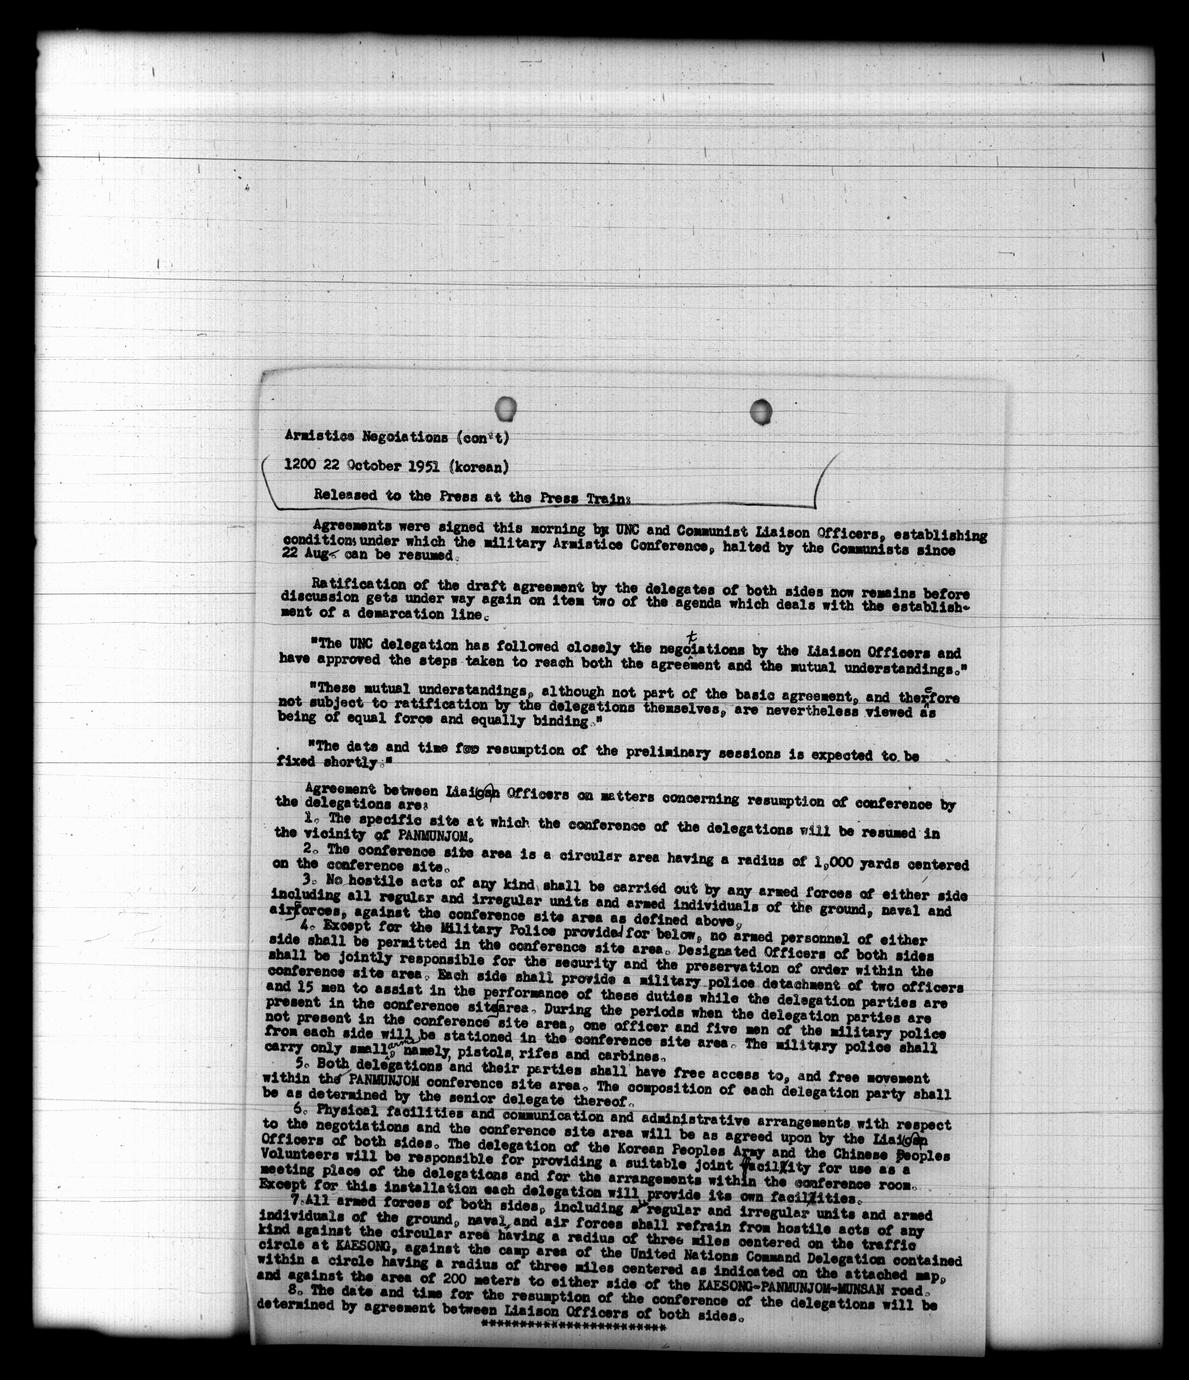 Armistice Negoiations (con't)
1200 22 October 1951 (korean)
Released to the Press at the Press Train:
Agreements were signed this morning by UNC and Communist Liaison Officers, establishing
conditions under which the military Armistice Conference, halted by the Communists since
22 Aug. can be resumed.
Ratification of the draft agreement by the delegates of both sides now remains before
discussion gets under way again on item two of the agenda which deals with the establish-
ment of a demarcation line.
"The UNC delegation has followed closely the negotiations by the Liaison Officers and
have approved the steps taken to reach both the agreement and the mutual understandings."
"These mutual understandings, although not part of the basic agreement, and therefore
not subject to ratification by the delegations themselves, are nevertheless viewed as
being of equal force and equally binding."
"The date and time for resumption of the preliminary sessions is expected to be
fixed shortly."
Agreement between Liaison Officers on matters concerning resumption of conference by
the delegations are:
1. The specific site at which the conference of the delegations will be resumed in
the vicinity of PANMUNJOM.
2. The conference site area is a circular area having a radius of 1,000 yards centered
on the conference site.
3. No hostile acts of any kind shall be carried out by any armed forces of either side
including all regular and irregular units and armed individuals of the ground, naval and
air forces, against the conference site area as defined above.
4. Except for the Military Police provided for below, no armed personnel of either
side shall be permitted in the conference site area. Designated Officers of both sides
shall be jointly responsible for the security and the preservation of order within the
conference site area. Each side shall provide a military police detachment of two officers
and 15 men to assist in the performance of these duties while the delegation parties are
present in the conference site area. During the periods when the delegation parties are
not present in the conference site area, one officer and five men of the military police
from each side will be stationed in the conference site area. The military police shall
carry only small arms, namely, pistols, rifes and carbines.
5. Both delegations and their parties shall have free access to, and free movement
within the PANMUNJOM conference site area. The composition of each delegation party shall
be as determined by the senior delegate thereof.
6. Physical facilities and communication and administrative arrangements with respect
to the negotiations and the conference site area will be as agreed upon by the Liaison
Officers of both sides. The delegation of the Korean Peoples Army and the Chinese Peoples
Volunteers will be responsible for providing a suitable joint facility for use as a
meeting place of the delegations and for the arrangements within the conference room.
Except for this installation each delegation will provide its own facilities.
7.All armed forces of both sides, including regular and irregular units and armed
individuals of the ground, naval, and air forces shall refrain from hostile acts of any
kind against the circular area having a radius of three miles centered on the traffic
circle at KAESONG, against the camp area of the United Nations Command Delegation contained
within a circle having a radius of three miles centered as indicated on the attached map,
and against the area of 200 meters to either side of the KAESONG-PANMUNJOM-MUNSAN road.
8. The date and time for the resumption of the conference of the delegations will be
determined by agreement between Liaison Officers of both sides.
************************